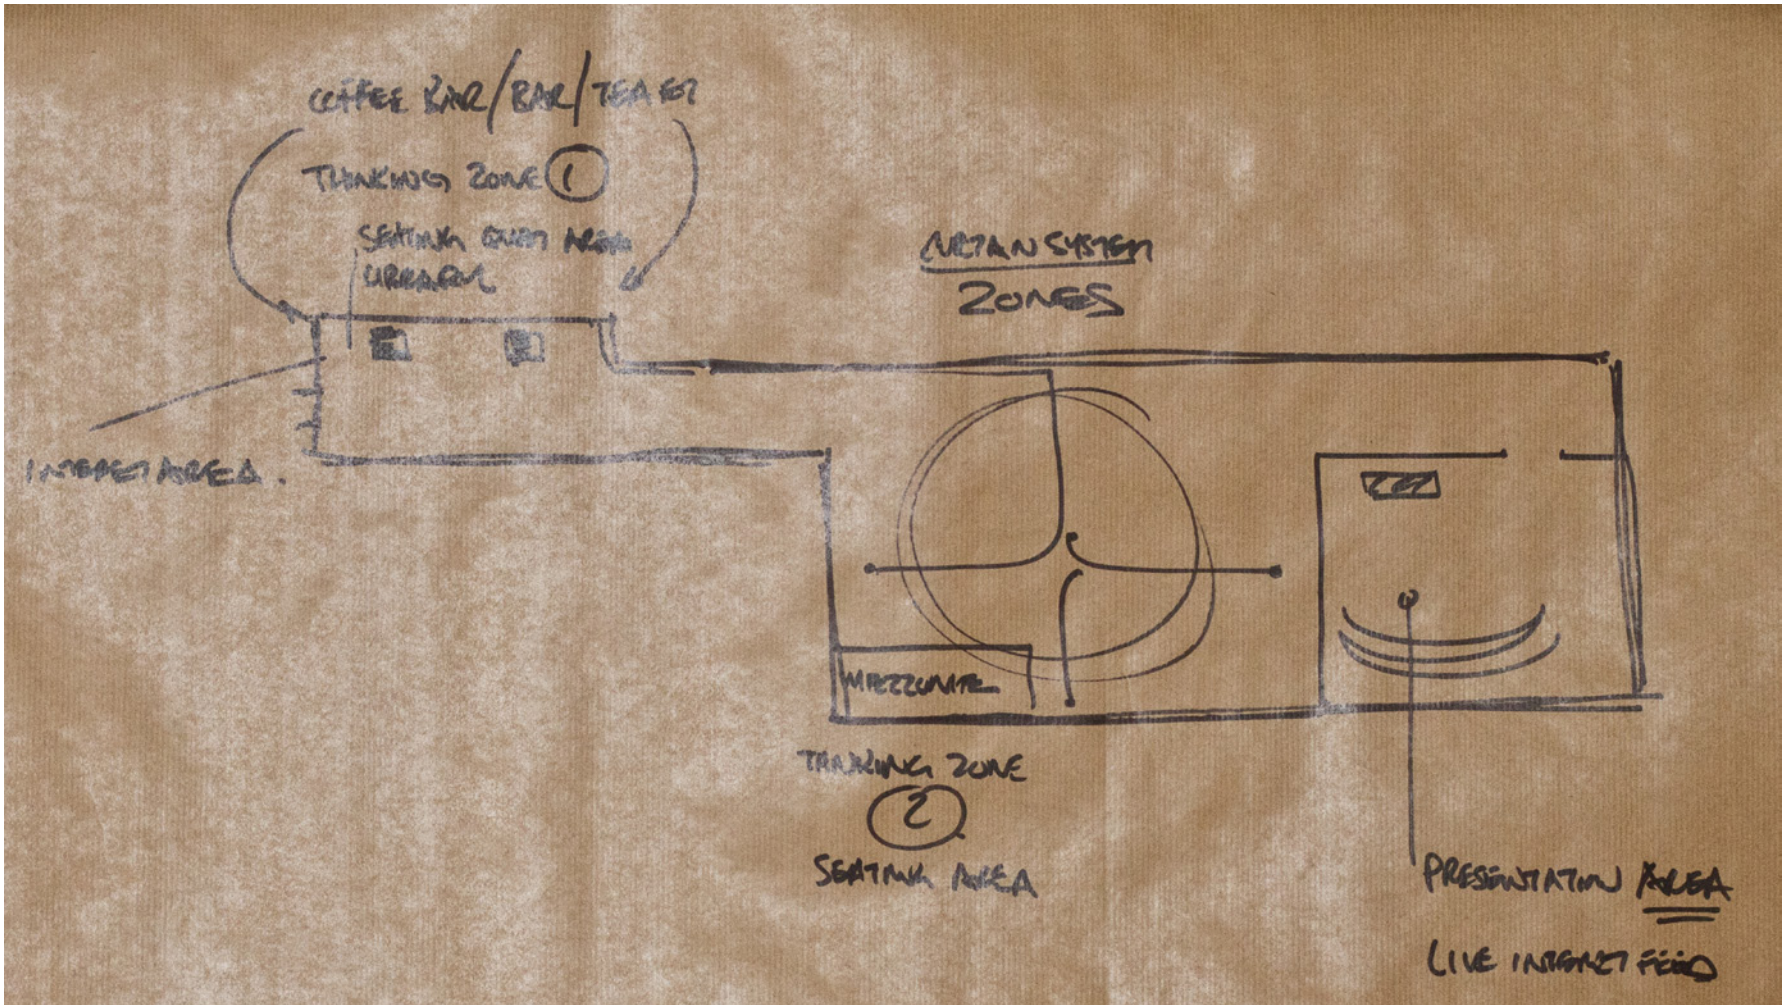 COFFEE BAR/BAR/TEA
THINKING ZONE 1
SEATING QUIET AREA
LIBRARY
CURTAIN SYSTEM
ZONES
INTERNET AREA.
MEZZONINE
THINKING ZONE
2
SEATING AREA
PRESENTATION AREA
LIVE INTERNET FEED